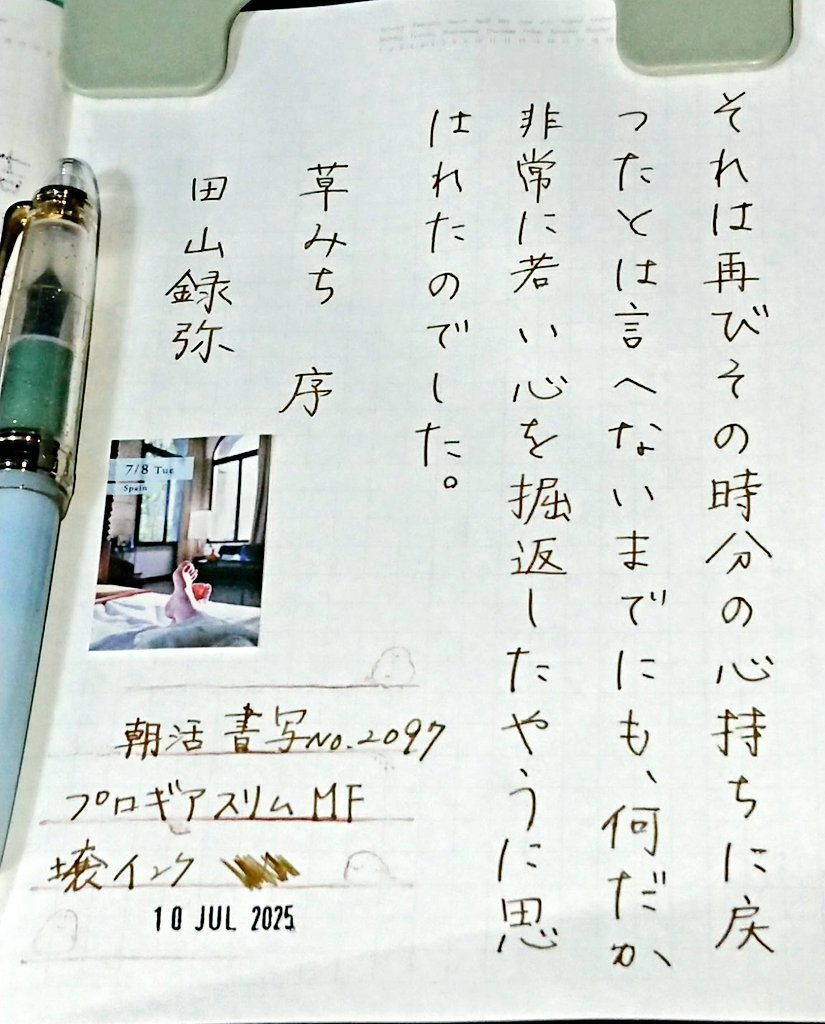 それは再びその時分の心持ちに戻
つたとは言へないまでにも、何だか
非常に若い心を掘返したやうに思
はれたのでした。
草みち 序
田山録弥
7/8 Tue
Spain
朝活書写No.2097
プロギアスリムMF
壌インク
10 JUL 2025